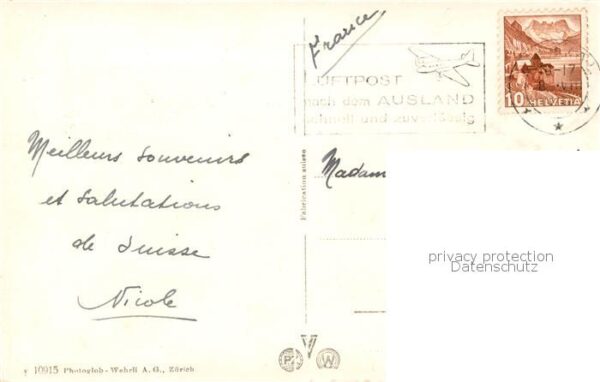 France
LUFTPOST
nach dem AUSLAND
schnell und zuverlässig
10 HELVETIA
Meilleurs souvenirs
et salutations
de Suisse
Nicole
Fabrication suisse
Madam
privacy protection
Datenschutz
10915 Photoglob-Wehrli A. G., Zürich
P
W